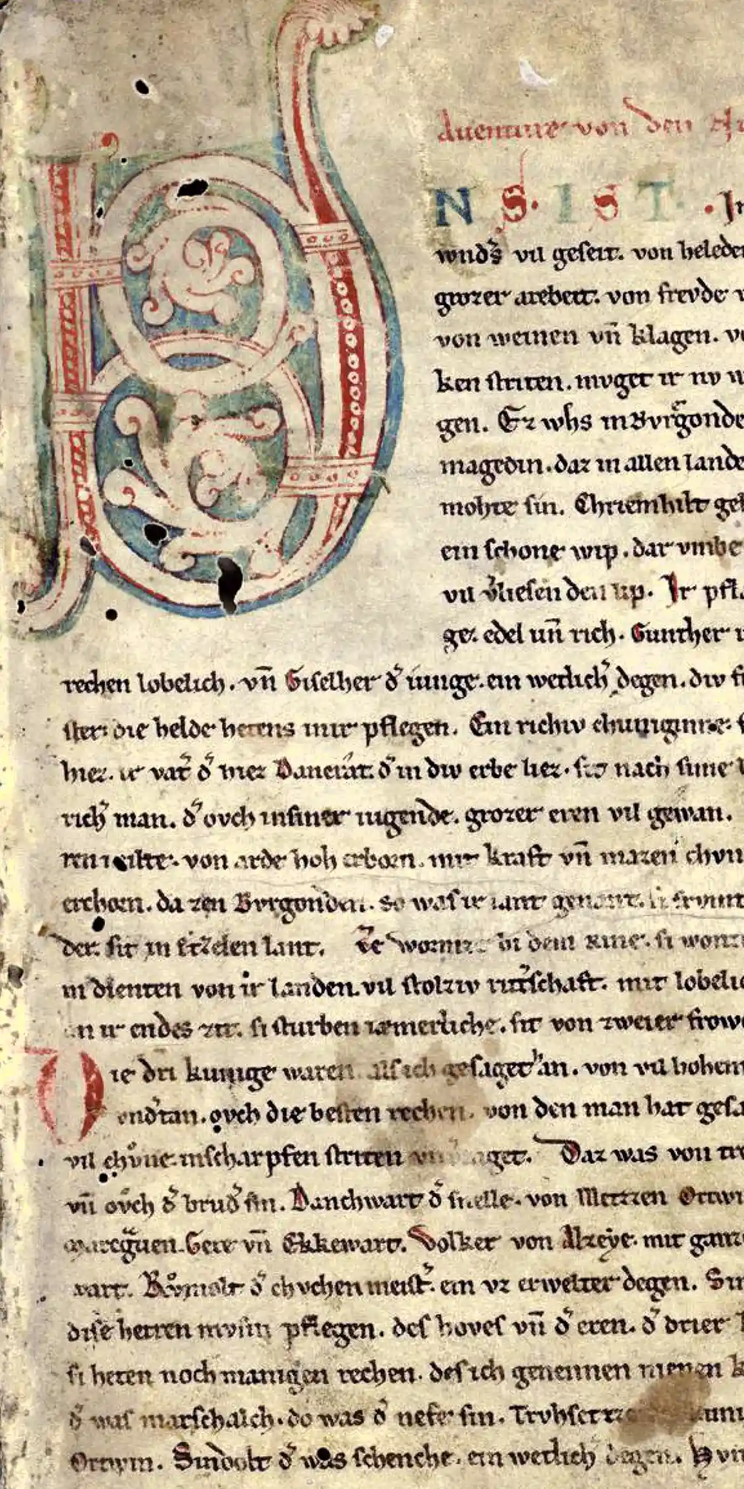 Auenture von den
V NS IST. In
wnds̄ vil geseit. von helede
grozer arebeit. von frevde
von weinen vn̄ klagen. v
ken striten. mvget ir nv w
gen. Ez whs in Bvrgonde
magedin. daz in allen lande
mohte sin. Chriemhilt geh
ein schone wip. dar vmbe
vil v̄liesen den lip. Ir pfl
gez edel un̄ rich. Gunther
rechen lobelich. vn̄ Giselher d̄ iunge. ein wetlich̄ degen. div
ster. die helde hetens inir pflegen. Ein richiv chuniginne.
hiez. ir vat̄ d̄ hiez Dancrat. d̄ in div erbe liez. sit nach sime
rich̄ man. d̄ ovch in siner iugende. grozer eren vil gewan.
ren milte. von arde hoh erborn. mit kraft vn̄ mazen chvn
erchorn. da zen Bvrgonden. so was ir lant genant. si frumt
der. sit in Etzelen lant. Ze Wormze bi dem Rine. si wont
in dienten von ir landen. vil stolziv rit̄schaft. mit lobelic
an ir endes zit. si sturben iæmerliche. sit von zweier frow
Die dri kunige waren als ich gesaget han. von vil hohem
endrtan. ovch die besten rechen. von den man hat gesa
vil chv̊ne. in scharpfen striten aget. Daz was von tr
vn̄ ovch d̄ brud̄ sin. Danchwart d̄ snelle. von Metzen Ortwi
margͣuen. Gere vn̄ Ekkewart. Volker von Alzeye. mit ganz
zart. Rv̊molt d̄ chvchenmeist̄. ein vz erwelter degen. Sin
dise herren mvsin pflegen. des hoves vn̄ d̄ eren. d̄ drier
si heten noch manigen rechen. des ich genennen nienen k
d̄ was marschalch. do was d̄ nefe sin. Trvhsetze
Ortwin. Sindolt d̄ was schenche. ein wetlich̄ degen. Hvn